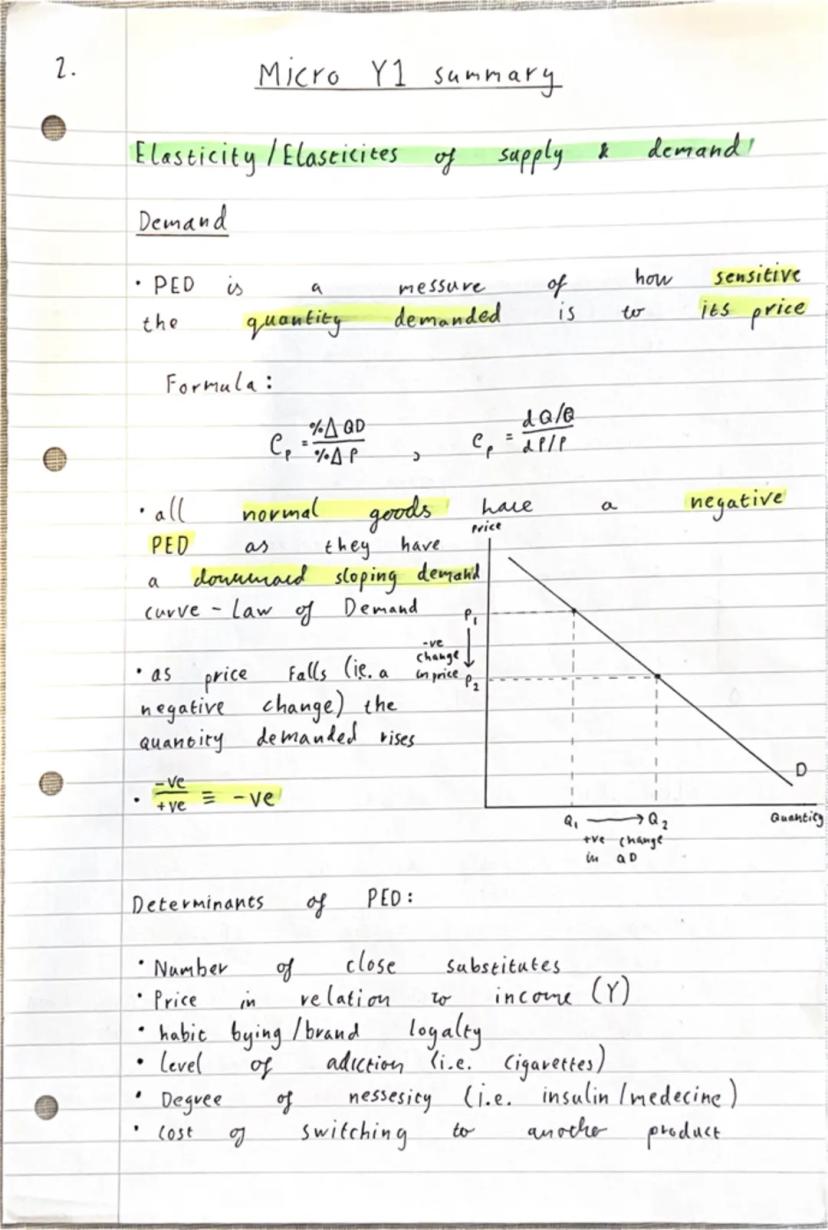 2.
Micro Y1 summary
Elasticity/Elasticites of supply & demand
Demand
• PED is a messure of how sensitive
the quantity demanded is to its price
Formula:
e_p = %Δ QD / %Δ P , e_p = dQ/Q / dP/P
• all normal goods have a negative
PED as they have
a downward sloping demand
curve - Law of Demand
• as price falls (ie. a
negative change) the
quantity demanded rises
• -ve / +ve ≡ -ve
Price
P₁
-ve
change
in price
P₂
D
Q₁ → Q₂
Quantity
+ve change
in QD
Determinants of PED:
• Number of close substitutes
• Price in relation to income (Y)
• habit bying/brand loyalty
• level of adiction (i.e. cigarettes)
• Degree of nessesity (i.e. insulin/medecine)
• cost of switching to another product